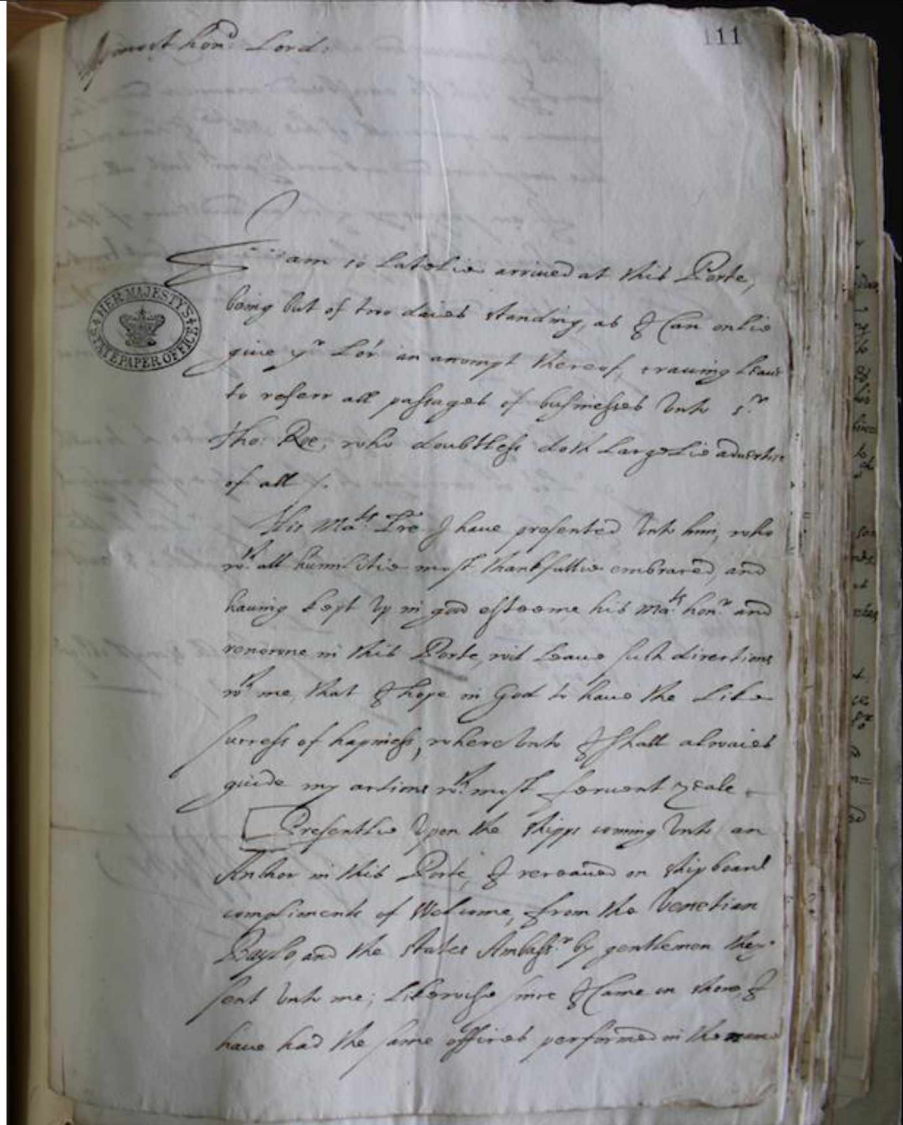 My most hon: Lord:
111
I am so latelie arrived at this Porte,
being but of two daies standing, as I can onlie
give yr Lo:r an accompt thereof, craving leave
to referr all passages of businesses unto Sr
Tho: Roe, who doubtless doth largelie advertise
of all /.
HER MAJESTY'S
STATE PAPER OFFICE
His Ma:ts Lre I have presented unto him, who
wth all humilitie most thankfullie embraced, and
having kept up in good esteeme his Ma:ts hon:r and
renowne in this Porte, wil leave such directions
wth me, that I hope in God to have the like
success of hapiness, whereunto I shall alwaies
guide my actions wth most fervent zeale.
Presentlie upon the shipps coming unto an
Anchor in this Porte, I receaved on shipboard
compliments of Welcome, from the Venetian
Baylo, and the states Ambassr by gentlemen they
sent unto me; likewise since I came on shore, I
have had the same offices performed in the name